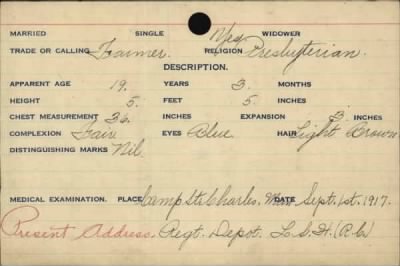 MARRIED SINGLE Yes WIDOWER
TRADE OR CALLING Farmer. RELIGION Presbyterian.
DESCRIPTION.
APPARENT AGE 19. YEARS 3. MONTHS
HEIGHT 5. FEET 5. INCHES
CHEST MEASUREMENT 36. INCHES EXPANSION 3. INCHES
COMPLEXION Fair EYES Blue HAIR Light Brown
DISTINGUISHING MARKS Nil.
MEDICAL EXAMINATION. PLACE Camp St. Charles, Man DATE Sept. 1st. 1917.
Present Address. Regt. Depot. L.S.H. (R.C.)